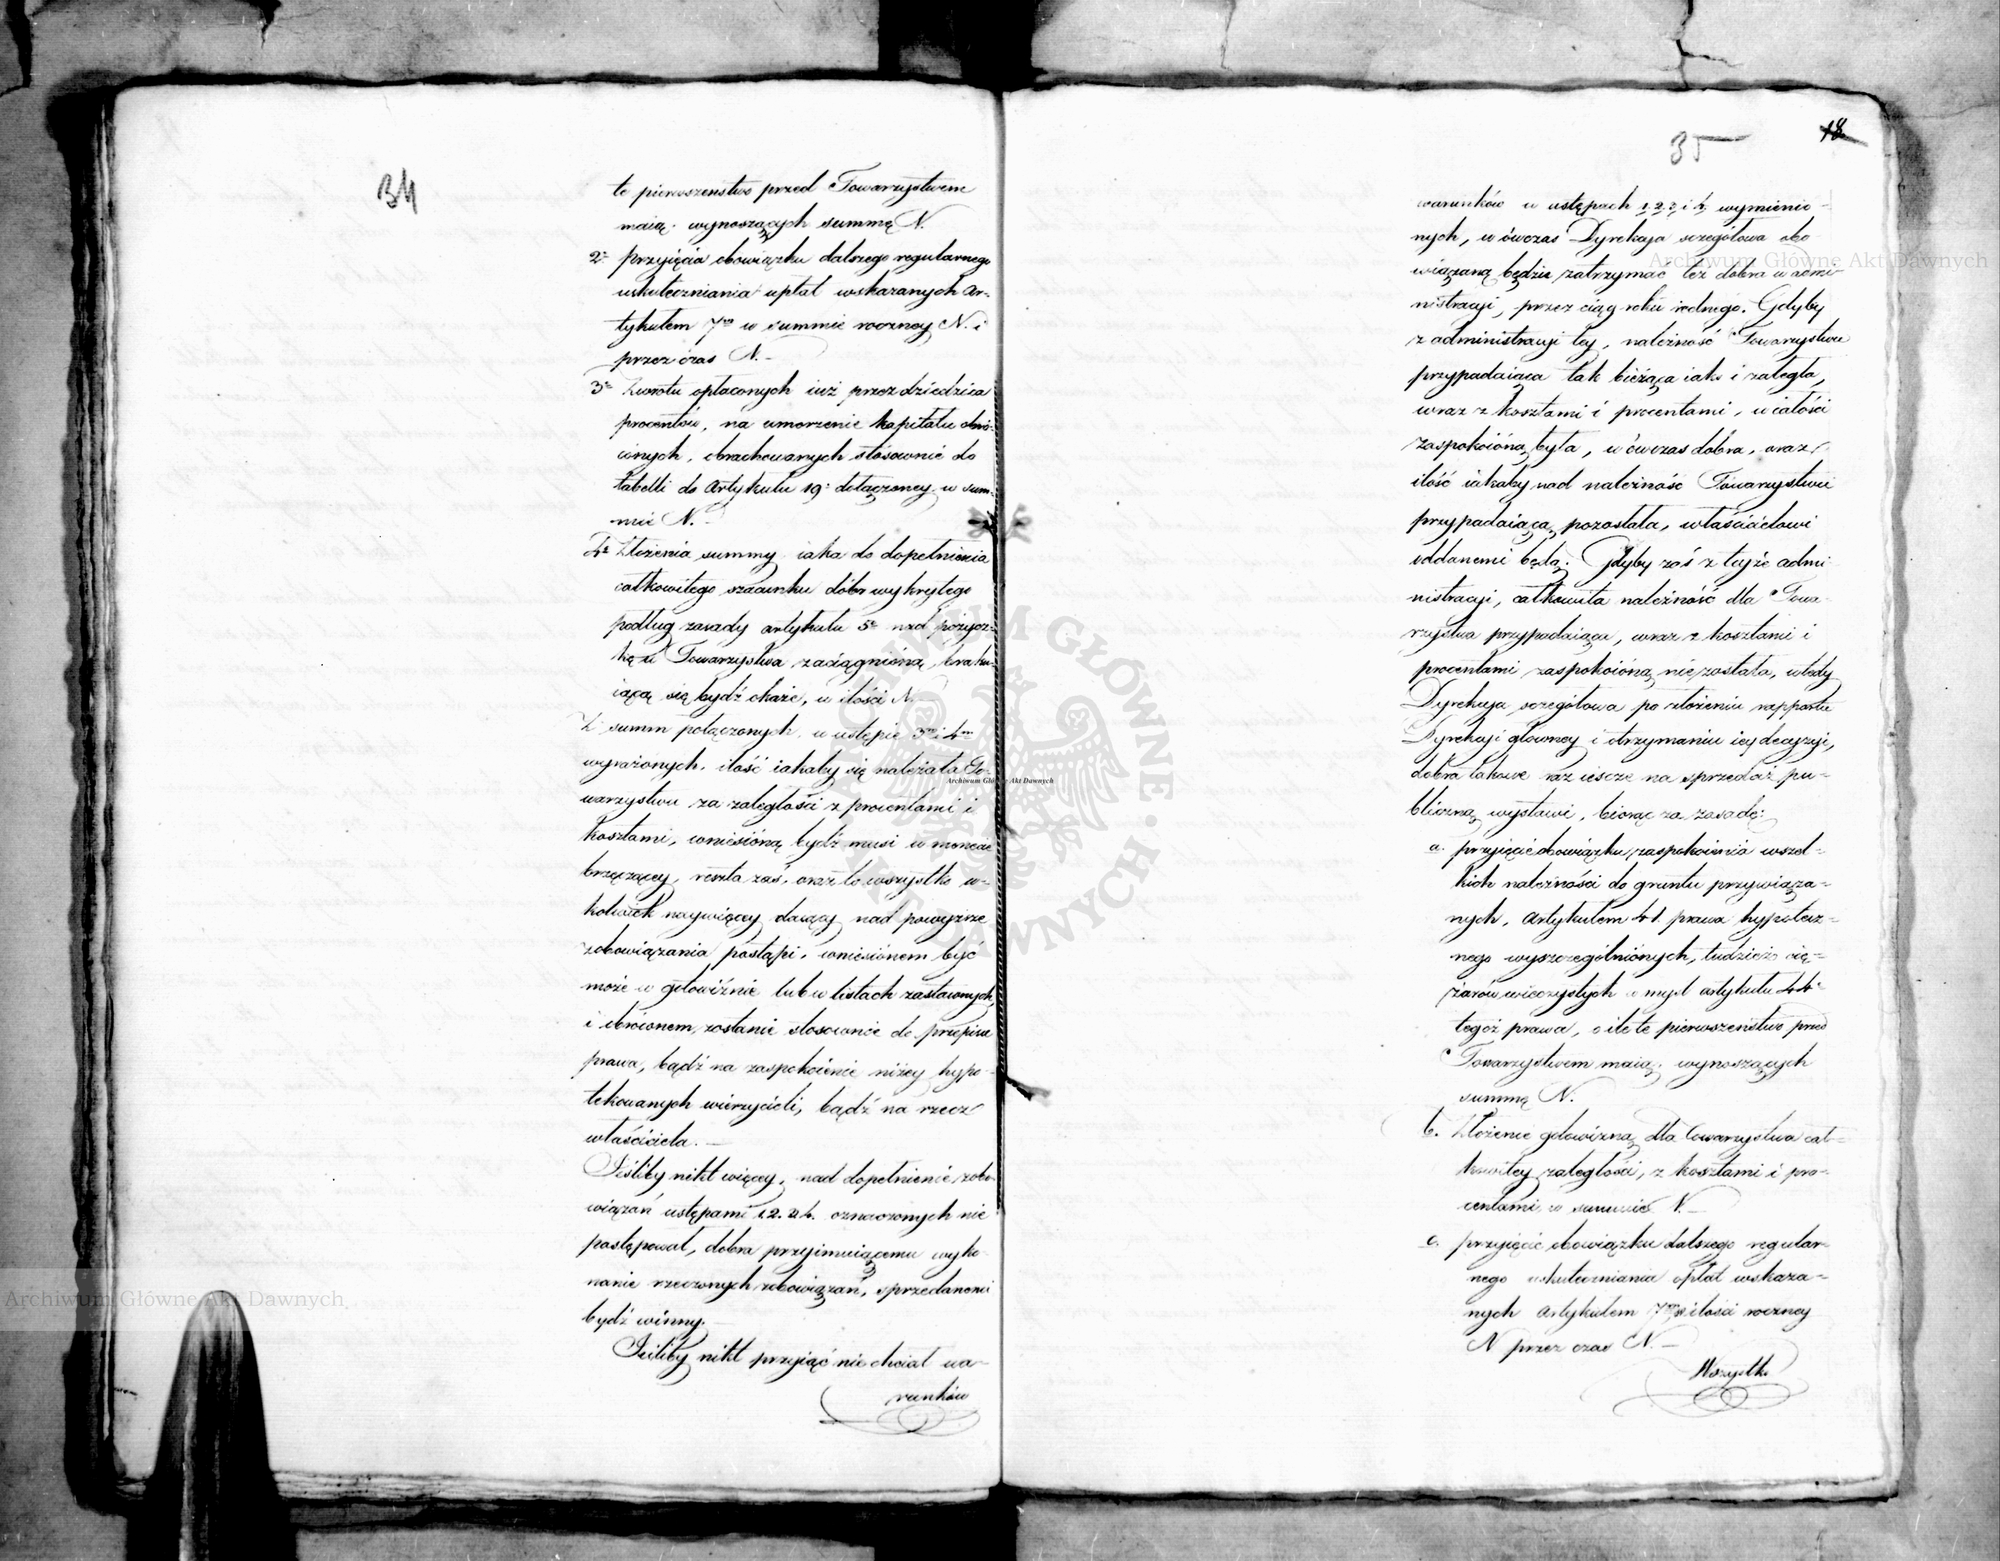 34
te pierwszenstwo przed Towarzystwem
maią. wynoszących summę N.
2º przyięcia obowiązku dalszego regularnego
uskuteczniania opłat wskazanych Ar-
tykułem 7m w summie roczney N. i
przez czas N.
3º Zwrotu opłaconych iuż przez dziedzica
procentów, na umorzenie kapitału obró-
conych, obrachowanych stósownie do
tabelli do Artykułu 19º dołączoney. w sum-
mie N.
4º Złożenia summy iaka do dopełnienia
całkowitego szacunku dóbr wykrytego
podług zasady artykułu 5º nad pożycz-
kę u Towarzystwa zaciągnioną, braku-
iącą się bydź okaże, w ilości N.
Z summ połączonych w ustępie 3m i 4m
wyrażonych. ilość iakaby się należała To-
warzystwu za zaległości z procentami i
kosztami, wniesioną bydź musi w monecie
brzęczącey, reszta zaś, oraz to wszystko co-
kolwiek naywięcey daiący nad powyższe
zobowiązania postąpi, wniesionem być
może w gotowiźnie lub w listach zastawnych,
i obróconem zostanie stosownie do przepisu
prawa, bądź na zaspokoienie niżey hypo-
tekowanych wierzycieli, bądź na rzecz
właściciela.
Jeśliby nikt więcey, nad dopełnienie zobo-
wiązań ustępami 1. 2. 3 i 4. oznaczonych nie
postępował, dobra przyimuiącemu wyko-
nanie rzeczonych zobowiązań, sprzedanemi
bydź winny.
Jeśliby nikt przyiąć nie chciał wa-
runków
35
18
warunków w ustępach 1. 2. 3. i 4. wymienio-
nych, w ówczas Dyrekcya szczegółowa obo-
wiązaną będzie zatrzymać też dobra w admi-
nistracyi, przez ciąg roku iednego. Gdyby
z administracyi tey, należność Towarzystwu
przypadaiąca tak bieżąca iako i zaległa,
wraz z kosztami i procentami, w całości
zaspokoioną była, w ówczas dobra, oraz
ilość iakaby nad należność Towarzystwu
przypadaiącą pozostała, właścicielowi
oddanemi będą. Gdyby zaś z teyże admi-
nistracyi, całkowita należność dla Towa-
rzystwa przypadaiąca, wraz z kosztami i
procentami zaspokoioną nie została, wtedy
Dyrekcya szczegółowa po złożeniu rapportu
Dyrekcyi główney i otrzymaniu iey decyzyi,
dobra takowe raz ieszcze na sprzedaż pu-
bliczną wystawi, biorąc za zasadę:
a. przyięcie obowiązku zaspokoienia wszel-
kich należności do gruntu przywiąza-
nych, Artykułem 41. prawa hypotecz-
nego wyszczególnionych, tudzież cię-
żarów wieczystych w myśl artykułu 44º
tegoż prawa, o ile te pierwszeństwo przed
Towarzystwem maią. wynoszących
summę N.
b. Złożenie gotowizną dla Towarzystwa cał-
kowitey zaległości, z kosztami i pro-
centami w summie N.
c. przyięcie obowiązku dalszego regular-
nego uskuteczniania opłat wskaza-
nych Artykułem 7m w ilości roczney
N przez czas N.
Wszystko
Archiwum Główne Akt Dawnych
Archiwum Główne Akt Dawnych
Archiwum Główne Akt Dawnych
ARCHIWUM GŁÓWNE AKT DAWNYCH